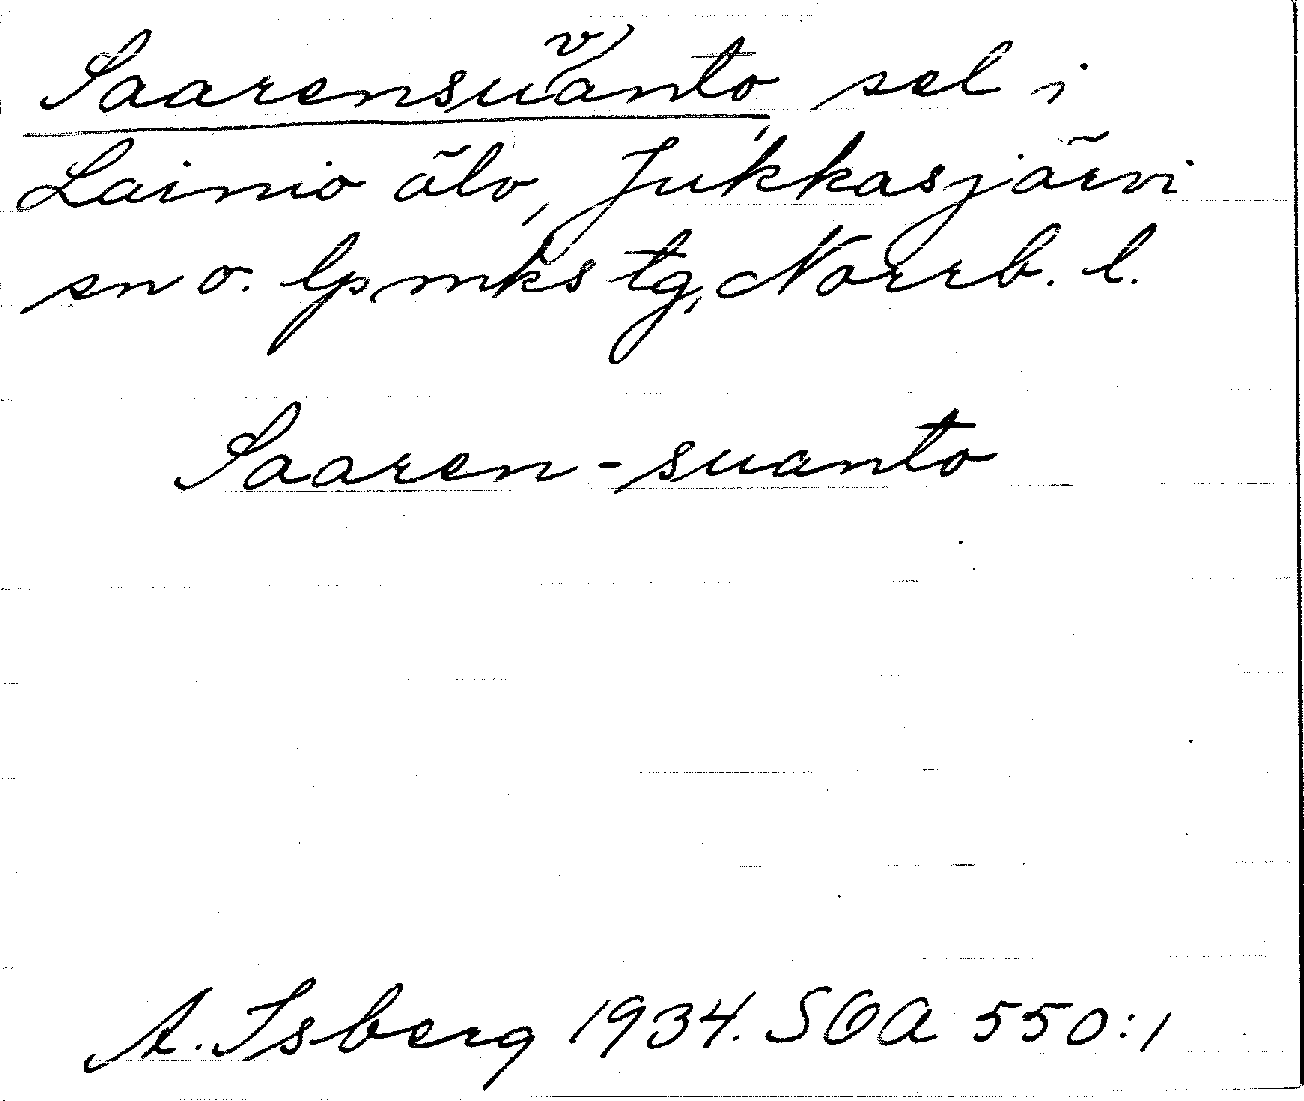 Saarensu(v)anto, sel i
Lainio älv, Jukkasjärvi
sn o. lpmks tg, Norrb. l.
Saaren-suanto
A. Isberg 1934. SOA 550:1